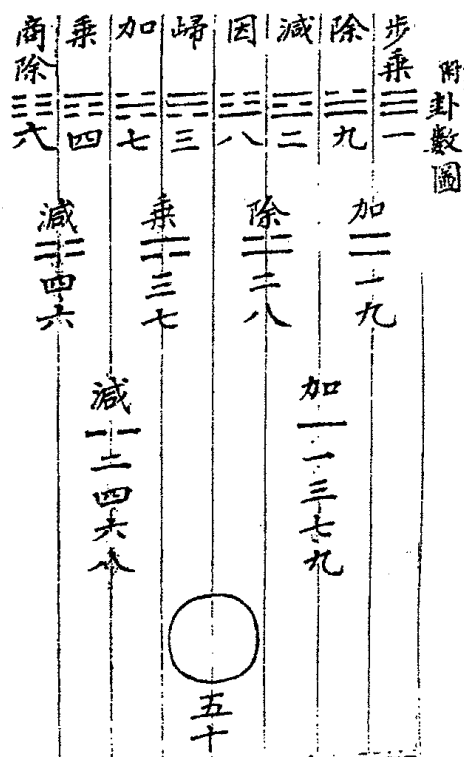 附卦數圖
步乘
一
除
九
減
二
因
八
歸
三
加
七
乘
四
商除
六
加
一九
除
二八
乘
三七
減
四六
加
一三七九
減
二四六八
五十